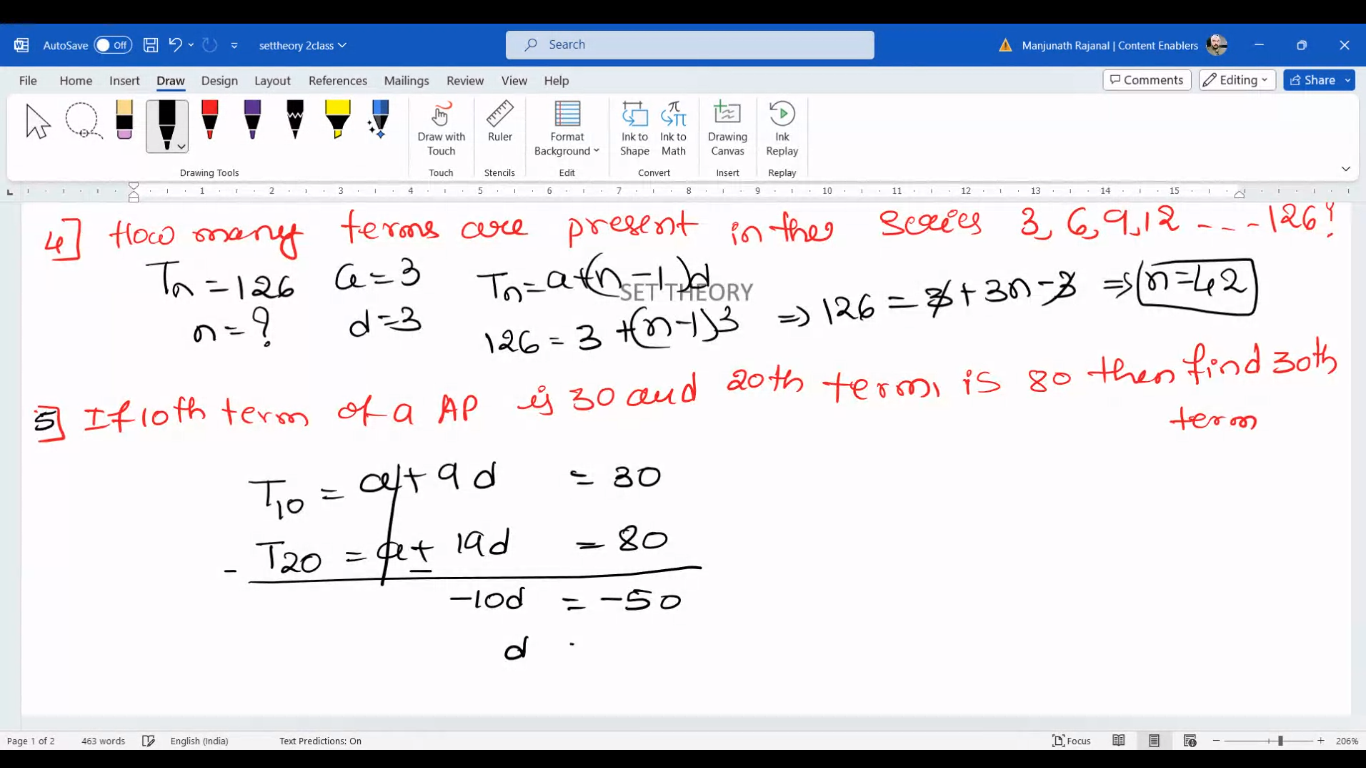 AutoSave Off settheory 2class Search Manjunath Rajanal | Content Enablers
File Home Insert Draw Design Layout References Mailings Review View Help Comments Editing Share
Draw with Touch Ruler Format Background Ink to Shape Ink to Math Drawing Canvas Ink Replay
Drawing Tools Touch Stencils Edit Convert Insert Replay
1 2 3 4 5 6 7 8 9 10 11 12 13 14 15
4] How many terms are present in the series 3, 6, 9, 12 - - - - 126?
Tn = 126 a = 3 Tn = a + (n - 1)d
SET THEORY
n = ? d = 3 126 = 3 + (n - 1)3 => 126 = 3 + 3n - 3 => n = 42
5] If 10th term of a AP is 30 and 20th term, is 80 then find 30th
term
T10 = a + 9d = 30
- T20 = a ± 19d = 80
-10d = -50
d
Page 1 of 2 463 words English (India) Text Predictions: On Focus 206%